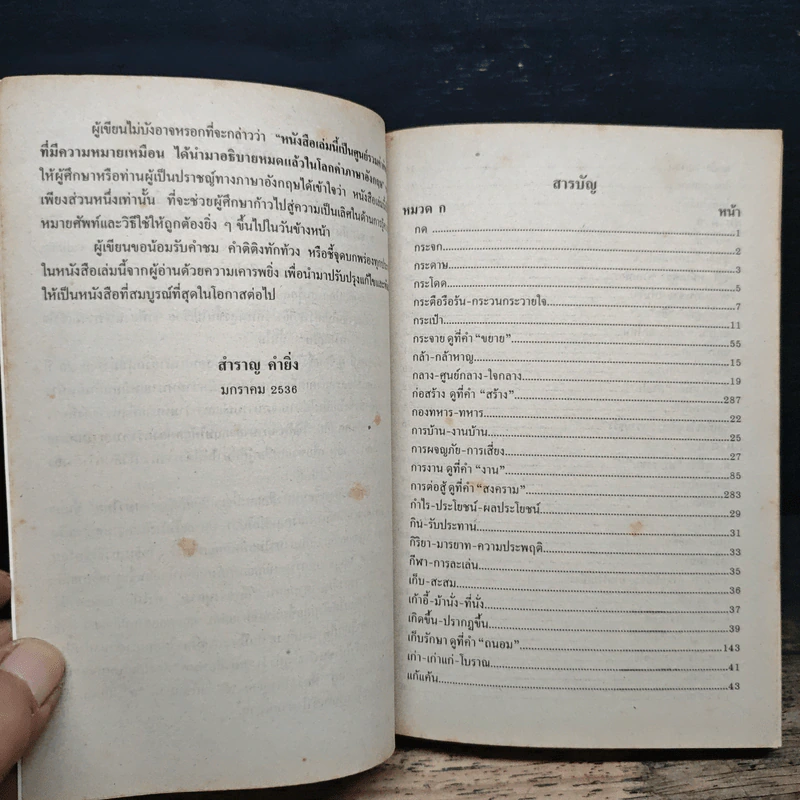 ผู้เขียนไม่บังอาจหรอกที่จะกล่าวว่า "หนังสือเล่มนี้เป็นศูนย์รวมคำ
ที่มีความหมายเหมือน ได้นำมาอธิบายหมดแล้วในโลกคำภาษาอังกฤษ"
ให้ผู้ศึกษาหรือท่านผู้เป็นปราชญ์ทางภาษาอังกฤษได้เข้าใจว่า หนังสือเล่มนี้
เพียงส่วนหนึ่งเท่านั้น ที่จะช่วยผู้ศึกษาก้าวไปสู่ความเป็นเลิศในด้านการ
หมายศัพท์และวิธีใช้ให้ถูกต้องยิ่ง ๆ ขึ้นไปในวันข้างหน้า
ผู้เขียนขอน้อมรับคำชม คำติติงทักท้วง หรือชี้จุดบกพร่อง
ในหนังสือเล่มนี้จากผู้อ่านด้วยความเคารพยิ่ง เพื่อนำมาปรับปรุงแก้ไข
ให้เป็นหนังสือที่สมบูรณ์ที่สุดในโอกาสต่อไป
สำราญ คำยิ่ง
มกราคม 2536
สารบัญ
หมวด ก หน้า
กด 1
กระจก 2
กระดาษ 3
กระโดด 5
กระตือรือร้น-กระวนกระวายใจ 7
กระเป๋า 11
กระจาย ดูที่คำ "ขยาย" 55
กล้า-กล้าหาญ 15
กลาง-ศูนย์กลาง-ใจกลาง 19
ก่อสร้าง ดูที่คำ "สร้าง" 287
กองทหาร-ทหาร 22
การบ้าน-งานบ้าน 25
การผจญภัย-การเสี่ยง 27
การงาน ดูที่คำ "งาน" 85
การต่อสู้ ดูที่คำ "สงคราม" 283
กำไร-ประโยชน์-ผลประโยชน์ 29
กิน-รับประทาน 31
กิริยา-มารยาท-ความประพฤติ 33
กีฬา-การละเล่น 35
เก็บ-สะสม 36
เก้าอี้-ม้านั่ง-ที่นั่ง 37
เกิดขึ้น-ปรากฏขึ้น 39
เก็บรักษา ดูที่คำ "ถนอม" 143
เก่า-เก่าแก่-โบราณ 41
แก้แค้น 43